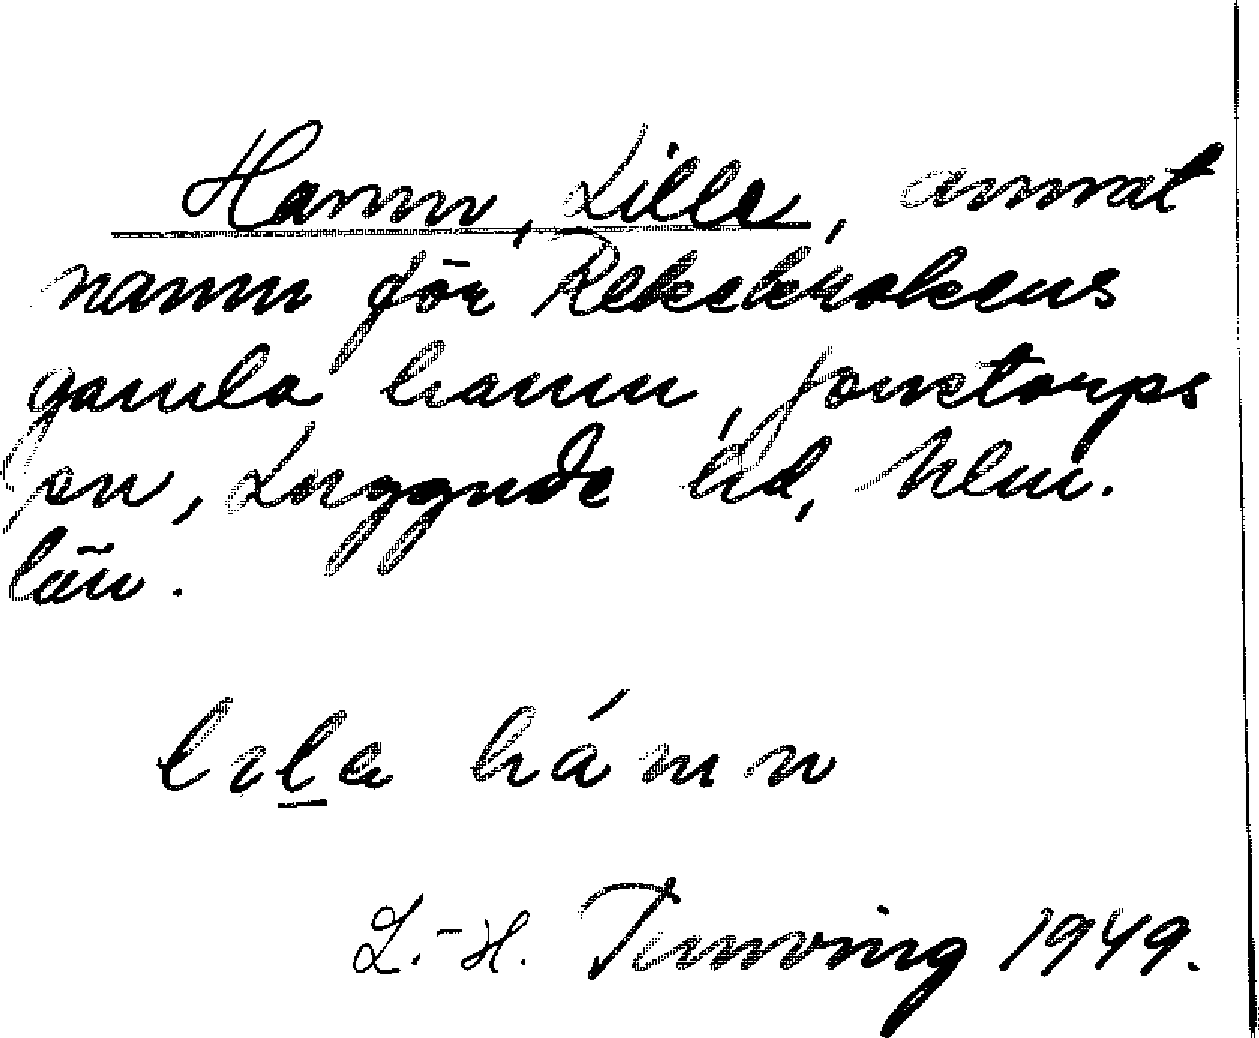 Hamn, Lille, annat
namn för Rekekrokens
gamla hamn, Jonstorps
sn, Luggude hd, Mlm.
län.
lila hámn
L.-H. Tunving 1949.